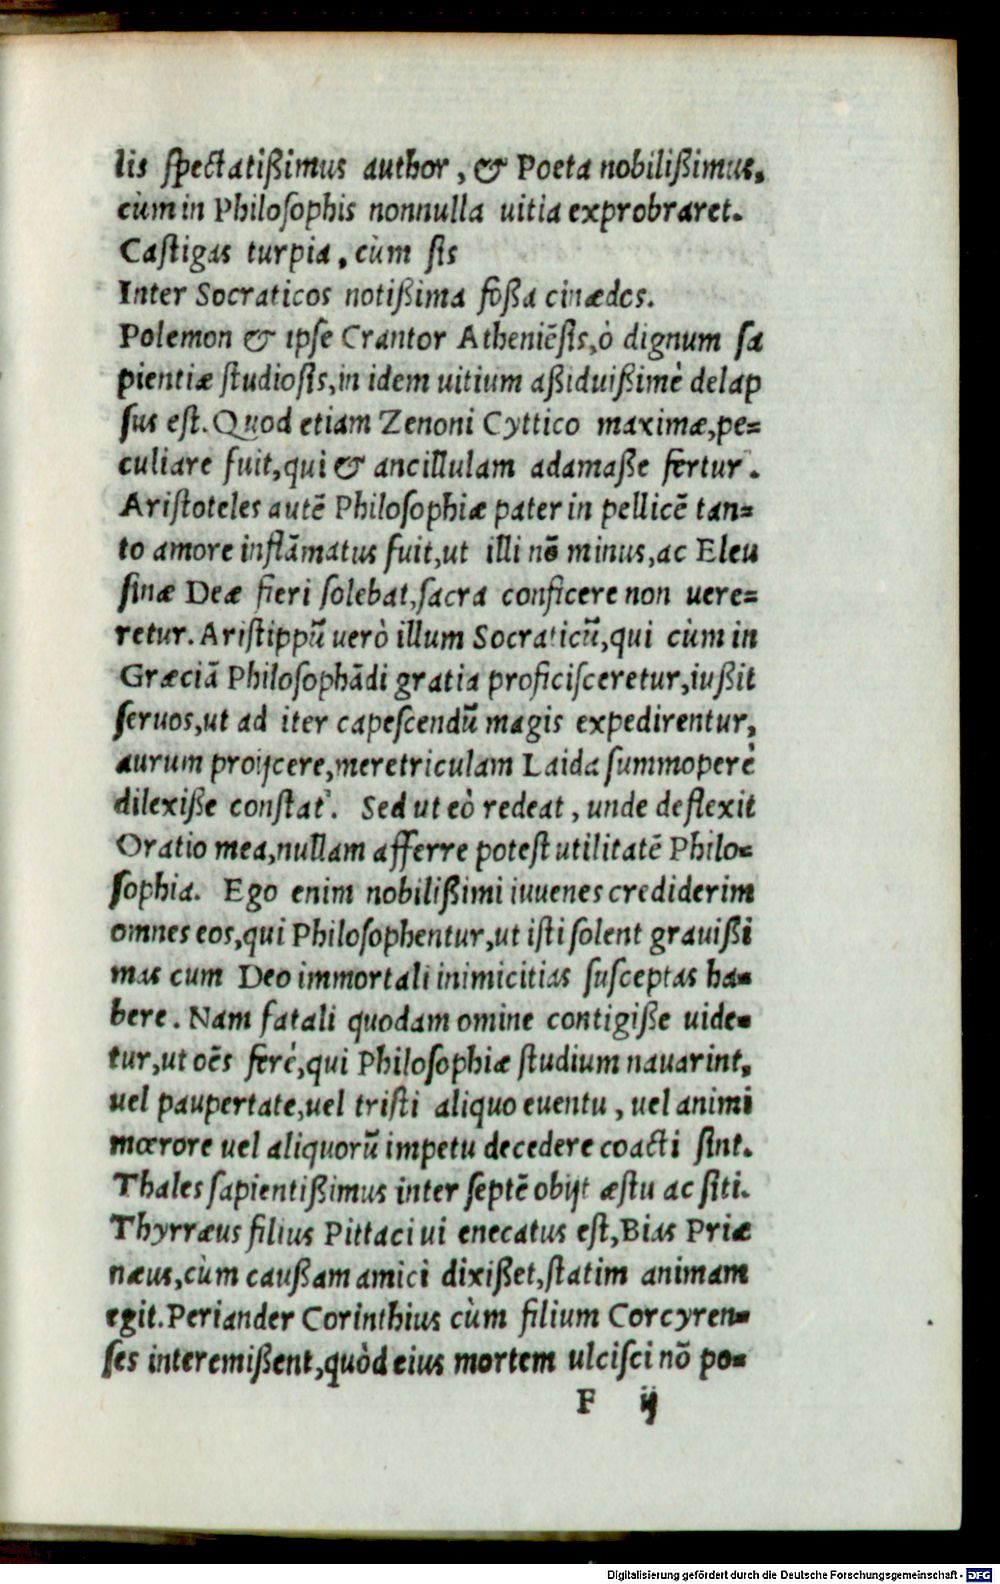 lis spectatißimus author, & Poeta nobilißimus,
cùm in Philosophis nonnulla uitia exprobraret.
Castigas turpia, cùm sis
Inter Socraticos notißima foßa cinædos.
Polemon & ipse Crantor Atheniẽsis, ò dignum sa
pientiæ studiosis, in idem uitium aßiduißimè delap
sus est. Quod etiam Zenoni Cyttico maximæ, pe=
culiare fuit, qui & ancillulam adamaße fertur.
Aristoteles autẽ Philosophiæ pater in pellicẽ tan=
to amore inflãmatus fuit, ut illi nõ minus, ac Eleu
sinæ Deæ fieri solebat, sacra conficere non uere=
retur. Aristippũ uerò illum Socraticũ, qui cùm in
Græciã Philosophãdi gratia proficisceretur, iußit
seruos, ut ad iter capescendũ magis expedirentur,
aurum proijcere, meretriculam Laida summoperè
dilexiße constat. Sed ut eò redeat, unde deflexit
Oratio mea, nullam afferre potest utilitatẽ Philo=
sophia. Ego enim nobilißimi iuuenes crediderim
omnes eos, qui Philosophentur, ut isti solent grauißi
mas cum Deo immortali inimicitias susceptas ha=
bere. Nam fatali quodam omine contigiße uide=
tur, ut oẽs ferè, qui Philosophiæ studium nauarint,
uel paupertate, uel tristi aliquo euentu, uel animi
mœrore uel aliquorũ impetu decedere coacti sint.
Thales sapientißimus inter septẽ obijt æstu ac siti.
Thyrræus filius Pittaci ui enecatus est, Bias Priæ
næus, cùm caußam amici dixißet, statim animam
egit. Periander Corinthius cùm filium Corcyren=
ses interemißent, quòd eius mortem ulcisci nõ po=
F ij
Digitalisierung gefördert durch die Deutsche Forschungsgemeinschaft - DFG